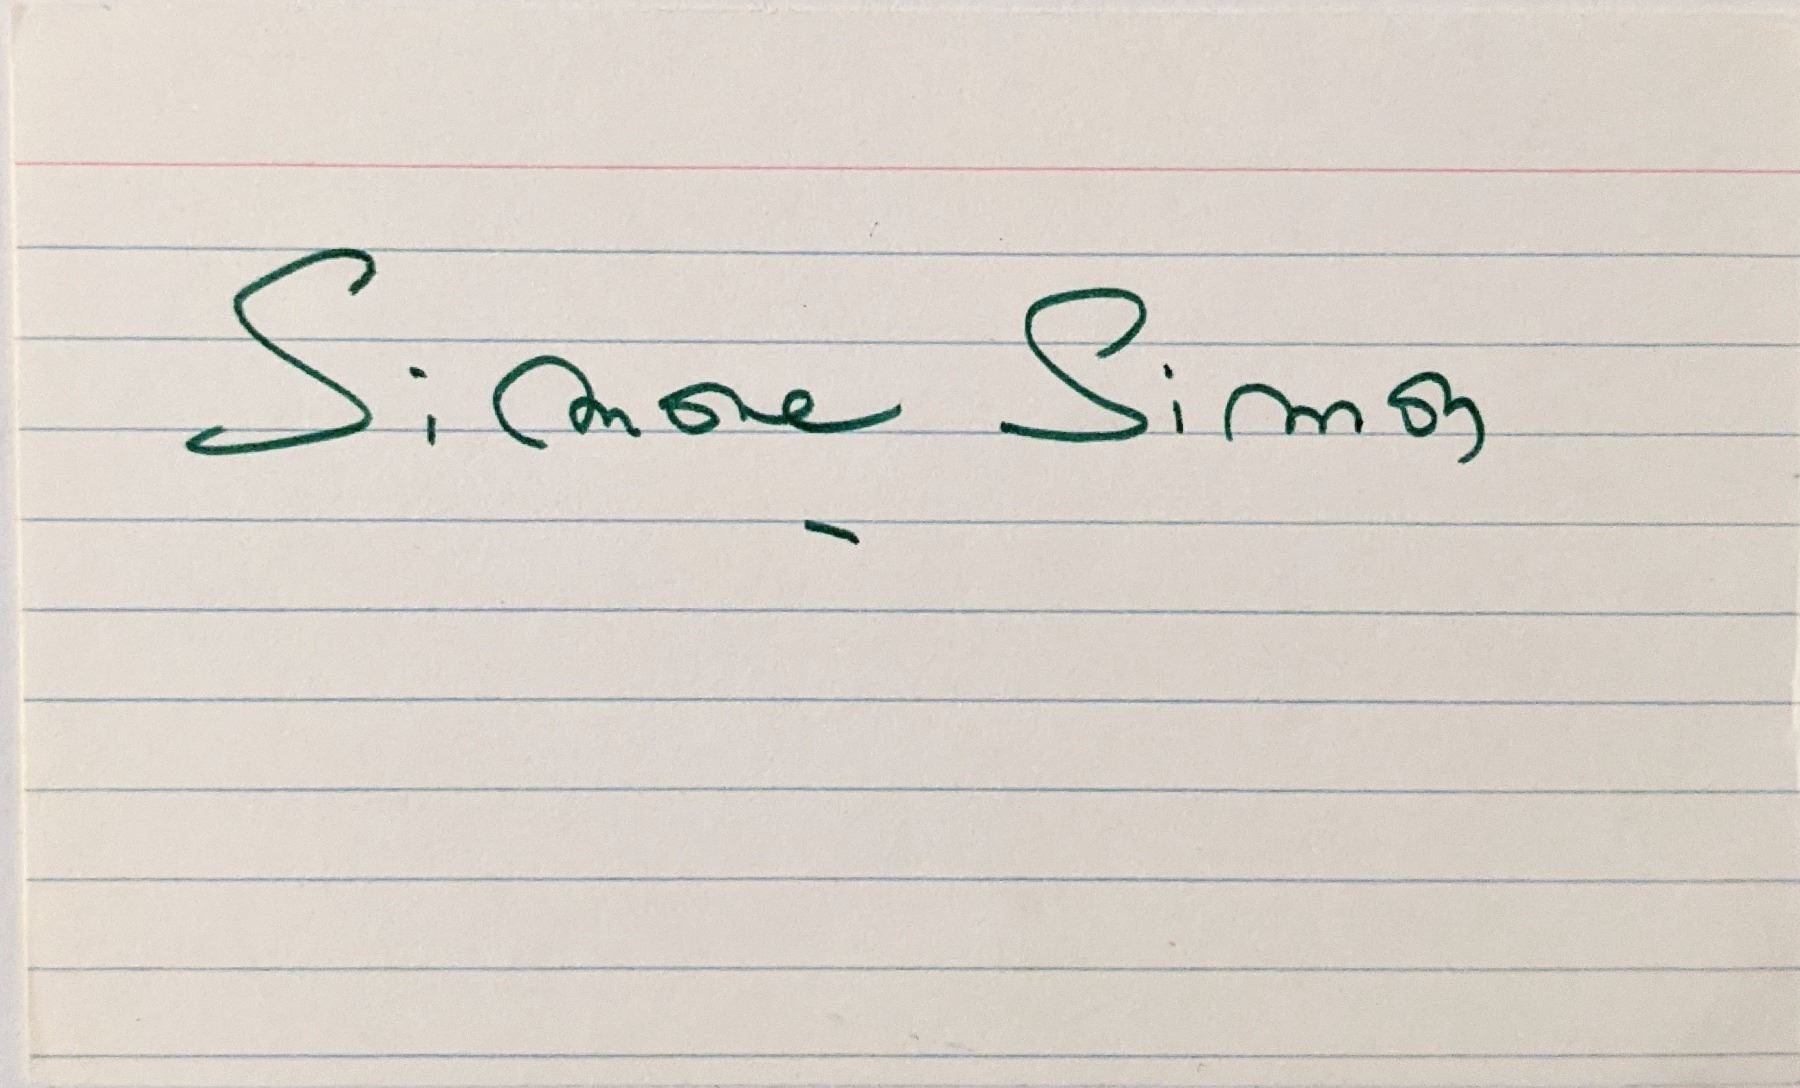 Simone Simon